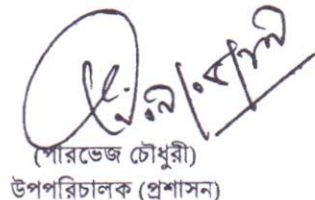 (পারভেজ চৌধুরী)
উপপরিচালক (প্রশাসন)